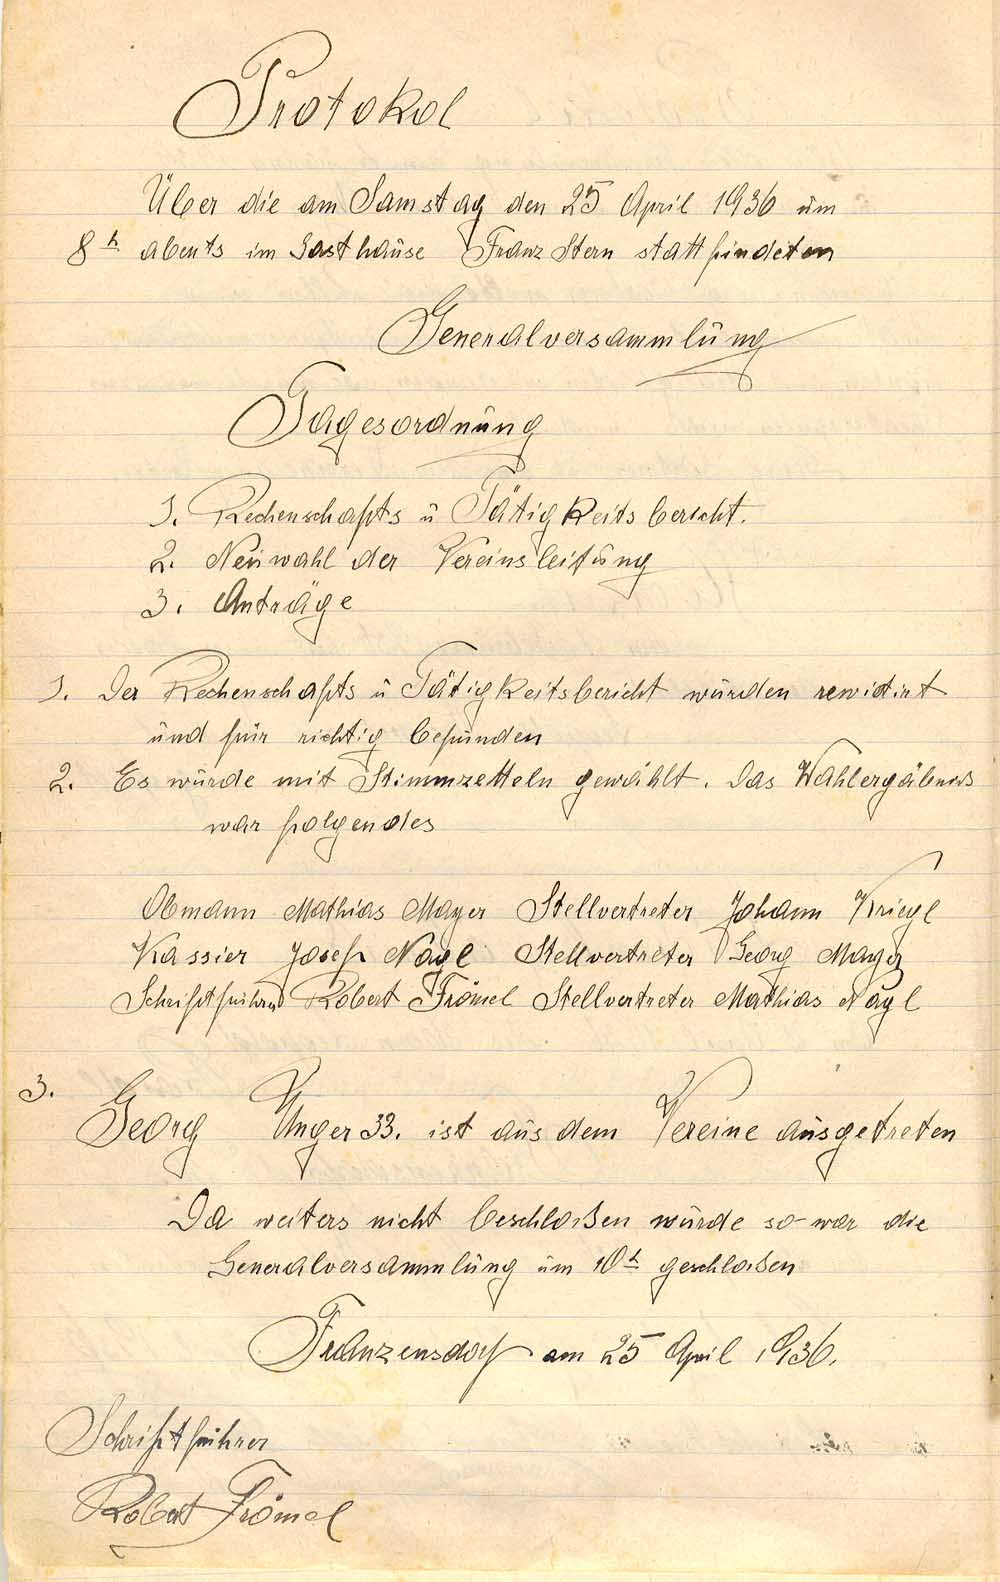 Protokol
Über die am Samstag den 25 April 1936 um
8 h abents im Gasthause Franz Stern stattfindeten
Generalversammlung
Tagesordnung
1. Rechenschafts u Tätigkeits bericht.
2. Neuwahl der Vereinsleitung
3. Anträge
1. Der Rechenschafts u Tätigkeitsbericht wurden rewidirt
und für richtig befunden
2. Es wurde mit Stimmzetteln gewählt. Das Wahlergäbnis
war folgendes
Obmann Mathias Mayer Stellvertreter Johann Kriegl
Kassier Josef Nagl Stellvertreter Georg Mayer
Schriftführer Robert Frömel Stellvertreter Mathias Nagl
3.
Georg Unger 33. ist aus dem Vereine ausgetreten
Da weiters nicht beschloßen wurde so war die
Generalversammlung um 10 h geschloßen
Franzensdorf am 25 April 1936.
Schriftführer
Robert Frömel